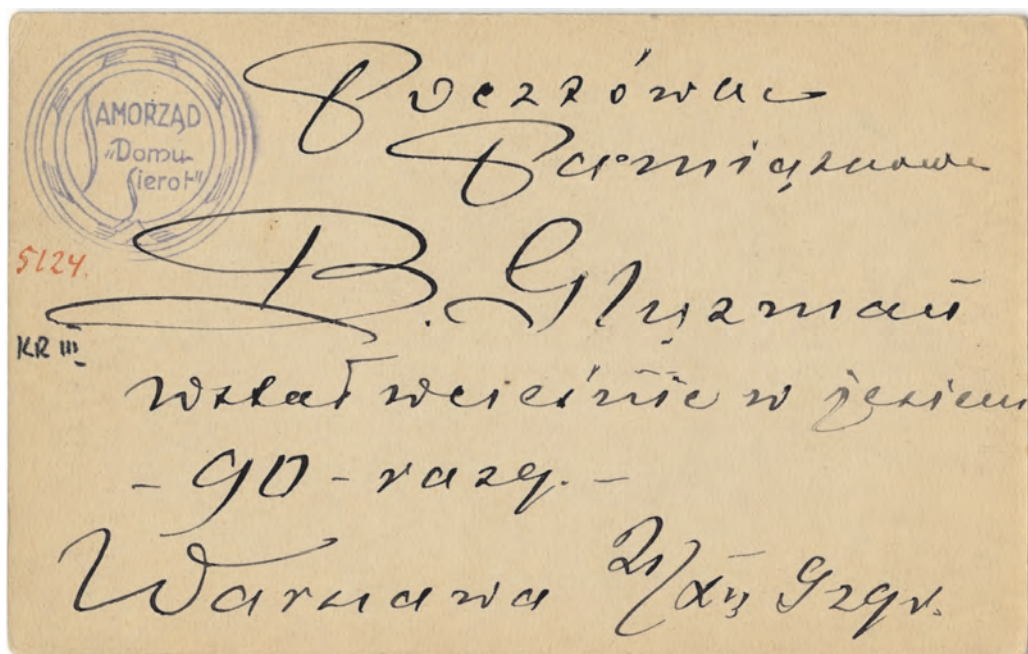 SAMORZĄD
„Domu
Sierot"
Pocztówka
Pamiątkowa
5124.
B.
KR III
wstał wcześnie w jesieni
- 90 - razy. -
Warszawa 21/XII 929r.